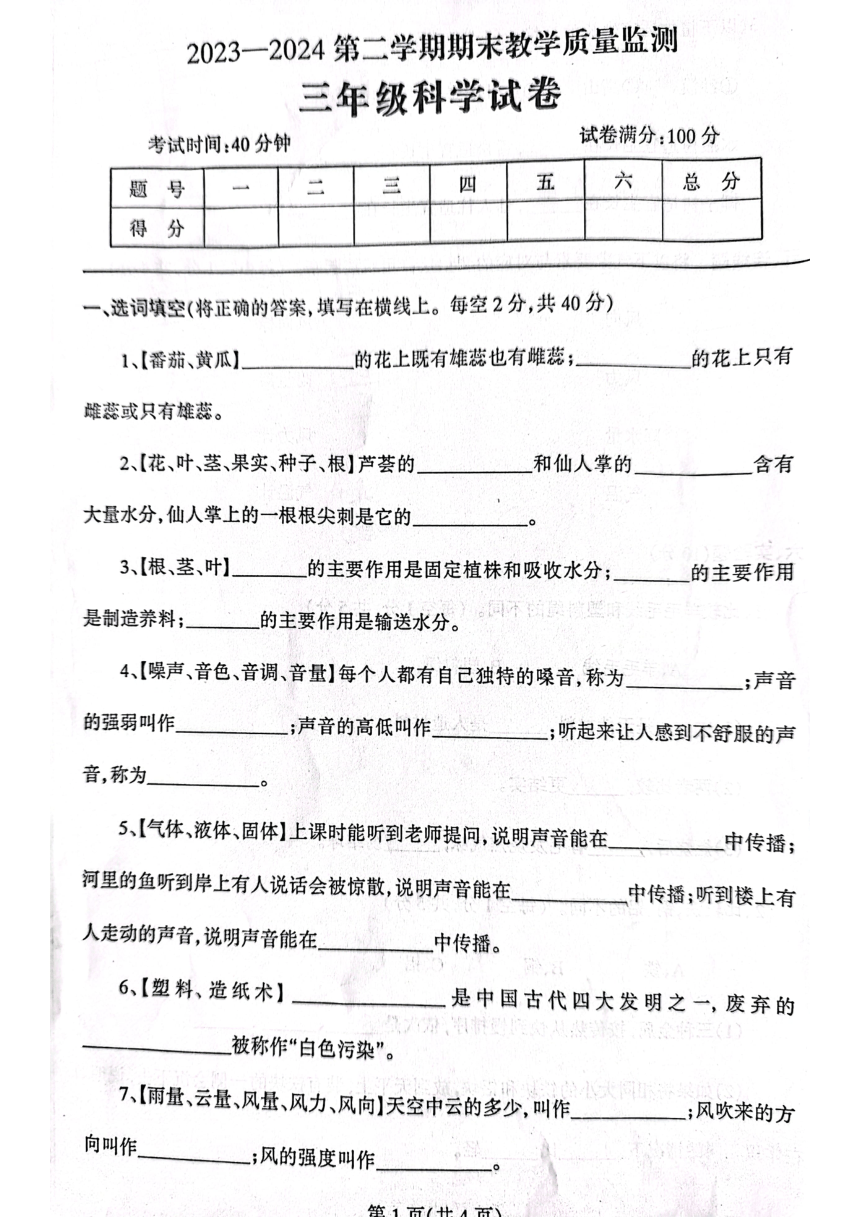 2023—2024 第二学期期末教学质量监测
三年级科学试卷
考试时间:40 分钟 试卷满分:100 分
题 号 一 二 三 四 五 六 总 分
得 分
一、选词填空(将正确的答案,填写在横线上。每空 2 分,共 40 分)
1、【番茄、黄瓜】__________的花上既有雄蕊也有雌蕊;__________的花上只有
雌蕊或只有雄蕊。
2、【花、叶、茎、果实、种子、根】芦荟的__________和仙人掌的__________含有
大量水分,仙人掌上的一根根尖刺是它的__________。
3、【根、茎、叶】_______的主要作用是固定植株和吸收水分;_______的主要作用
是制造养料;_______的主要作用是输送水分。
4、【噪声、音色、音调、音量】每个人都有自己独特的嗓音,称为__________;声音
的强弱叫作__________;声音的高低叫作__________;听起来让人感到不舒服的声
音,称为__________。
5、【气体、液体、固体】上课时能听到老师提问,说明声音能在__________中传播;
河里的鱼听到岸上有人说话会被惊散,说明声音能在__________中传播;听到楼上有
人走动的声音,说明声音能在__________中传播。
6、【塑料、造纸术】______________是中国古代四大发明之一,废弃的
______________被称作“白色污染”。
7、【雨量、云量、风量、风力、风向】天空中云的多少,叫作__________;风吹来的方
向叫作__________;风的强度叫作__________。
第 1 页(共 4 页)